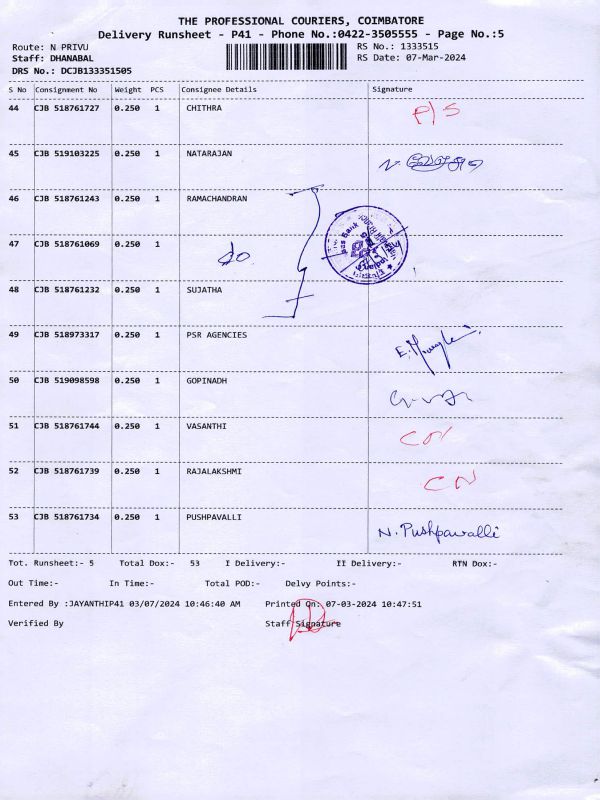 THE PROFESSIONAL COURIERS, COIMBATORE
Delivery Runsheet - P41 - Phone No.:0422-3505555 - Page No.:5
Route: N PRIVU RS No.: 1333515
Staff: DHANABAL RS Date: 07-Mar-2024
DRS No.: DCJB133351505
S No Consignment No Weight PCS Consignee Details Signature
44 CJB 518761727 0.250 1 CHITHRA P/S
45 CJB 519103225 0.250 1 NATARAJAN
46 CJB 518761243 0.250 1 RAMACHANDRAN
47 CJB 518761069 0.250 1 do.
48 CJB 518761232 0.250 1 SUJATHA
49 CJB 518973317 0.250 1 PSR AGENCIES
50 CJB 519098598 0.250 1 GOPINADH
51 CJB 518761744 0.250 1 VASANTHI
52 CJB 518761739 0.250 1 RAJALAKSHMI CN
53 CJB 518761734 0.250 1 PUSHPAVALLI N. Pushpavalli
Tot. Runsheet:- 5 Total Dox:- 53 I Delivery:- II Delivery:- RTN Dox:-
Out Time:- In Time:- Total POD:- Delvy Points:-
Entered By :JAYANTHIP41 03/07/2024 10:46:40 AM Printed On: 07-03-2024 10:47:51
Verified By Staff Signature